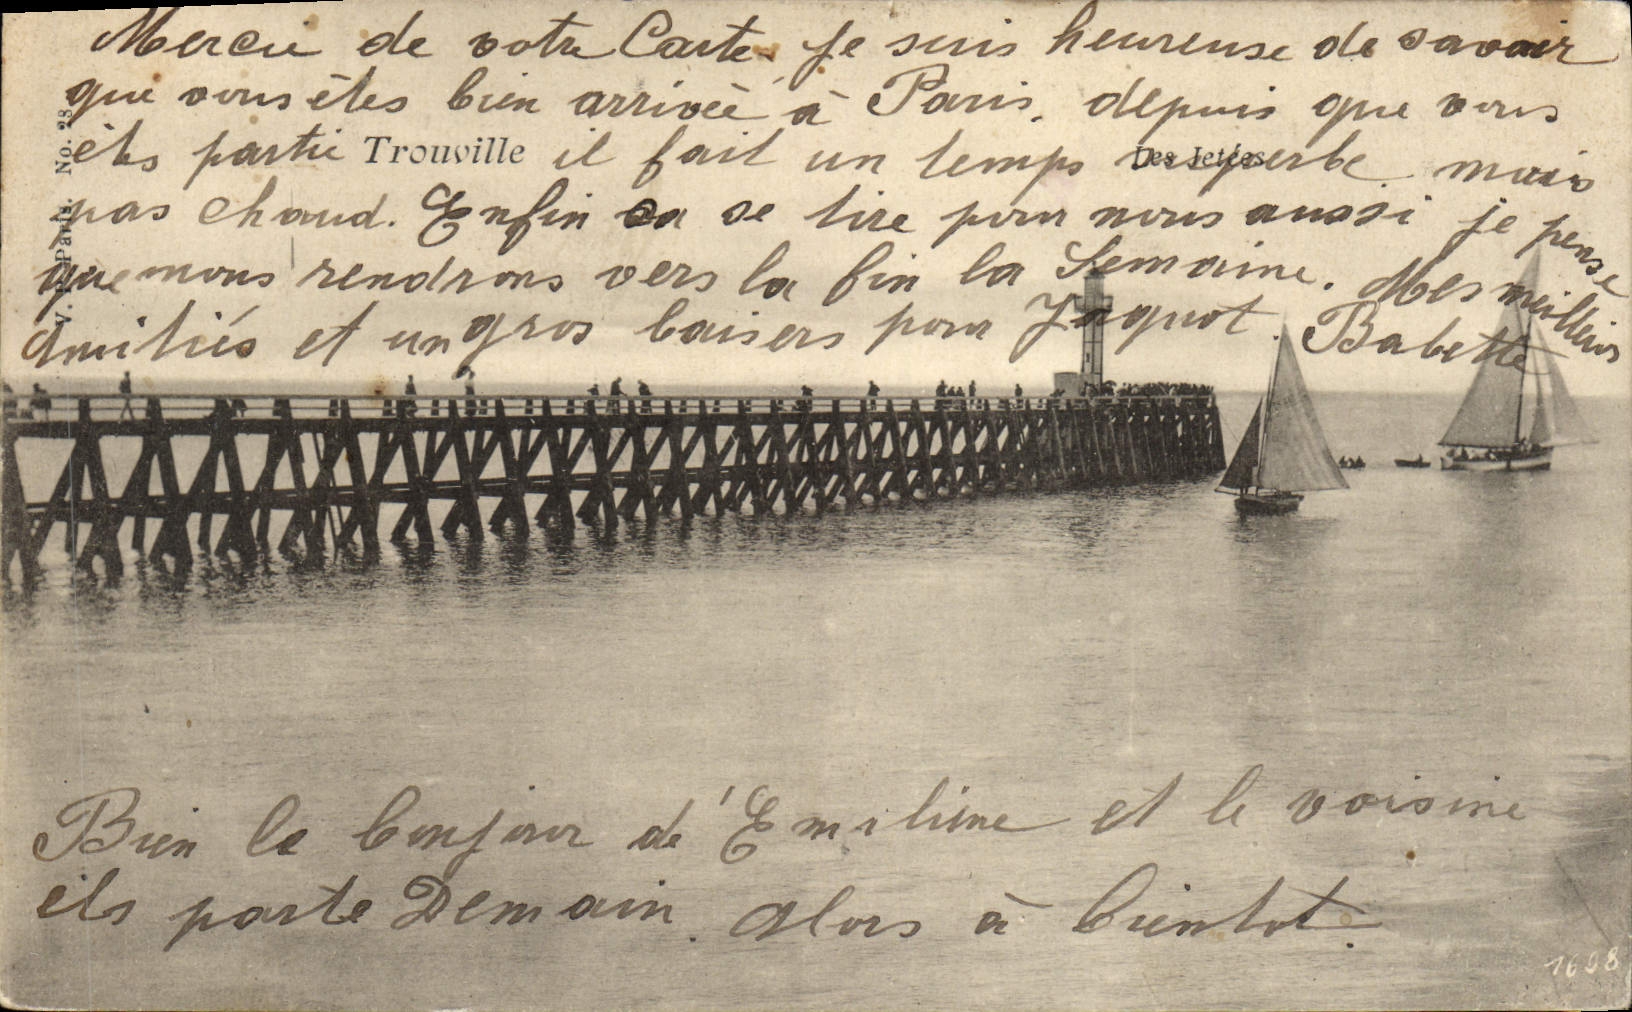 Mercie de votre Carte. Je suis heureuse de savoir
que vous êtes bien arrivée à Paris. depuis que vous
êts partie il fait un temps mais
Trouville
Les Jetées
pas chaud. Enfin ca se tire pour nous aussi je pense
que nous rendrons vers la fin la Semaine. Mes meilleurs
amitiés et un gros baisers pour Jaquot. Babette
V. P. Paris. No. 28
Bien le bonjour de Emiliene et le voisine
ils parte Demain. Alors à bientot.
1698